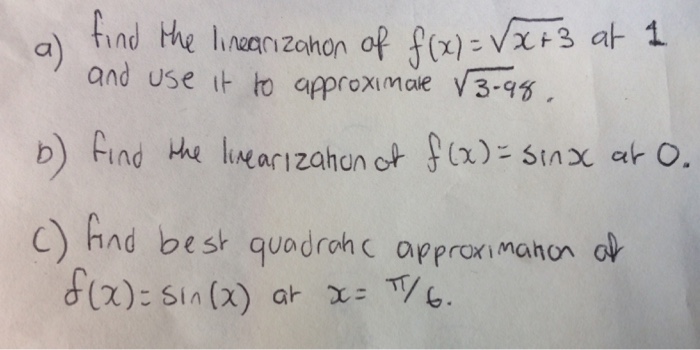 a) find the linearization of f(x) = √x+3 at 1
and use it to approximate √3.98.
b) find the linearization of f(x) = sinx at 0.
c) find best quadratic approximation of
f(x) = sin(x) at x = π/6.